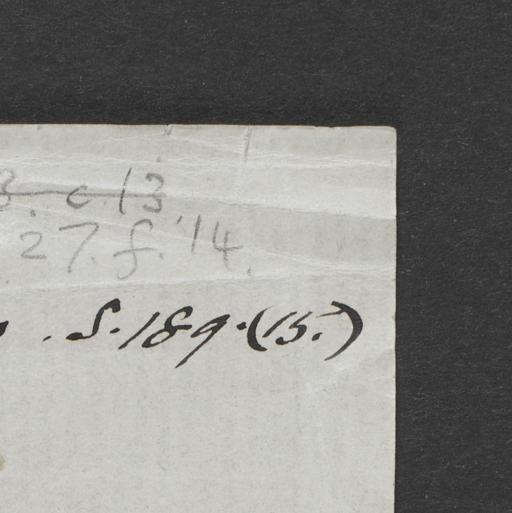 3. c. 13
27. f. 14.
. S. 189. (15.)